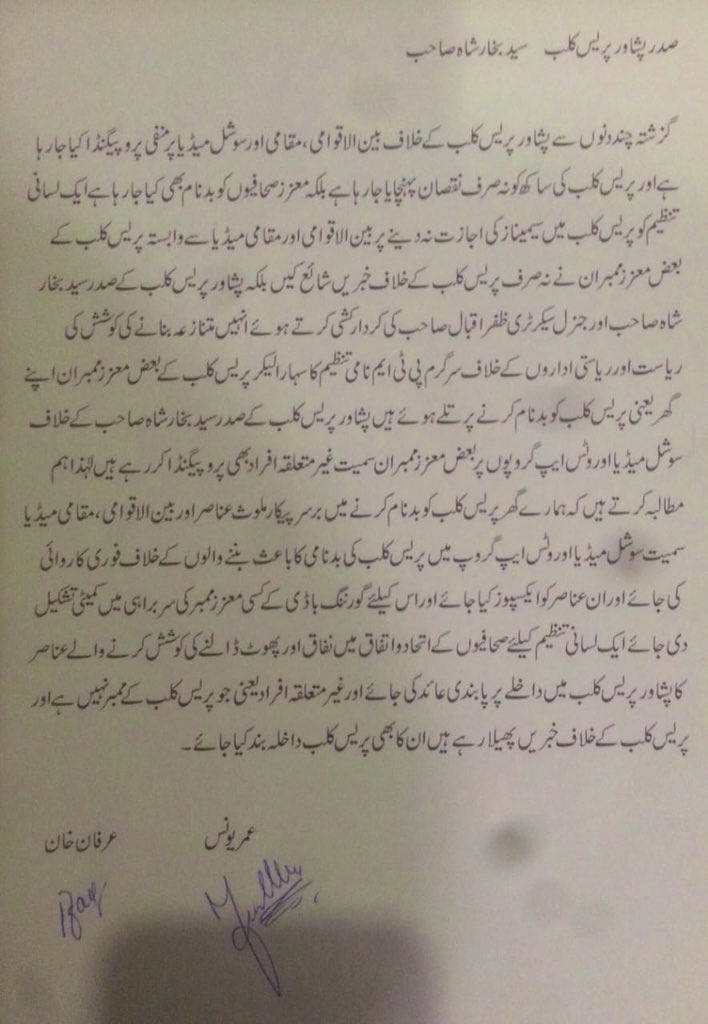 صدر پشاور پریس کلب سید بخار شاہ صاحب
گزشتہ چند دنوں سے پشاور پریس کلب کے خلاف بین الاقوامی، مقامی اور سوشل میڈیا پر منفی پروپیگنڈا کیا جا رہا
ہے اور پریس کلب کی ساکھ کو نہ صرف نقصان پہنچایا جا رہا ہے بلکہ معزز صحافیوں کو بدنام بھی کیا جا رہا ہے ایک لسانی
تنظیم کو پریس کلب میں سیمیناز کی اجازت نہ دینے پر بین الاقوامی اور مقامی میڈیا سے وابستہ پریس کلب کے
بعض معزز ممبران نے نہ صرف پریس کلب کے خلاف خبریں شائع کیں بلکہ پشاور پریس کلب کے صدر سید بخار
شاہ صاحب اور جنرل سیکرٹری ظفر اقبال صاحب کی کردار کشی کرتے ہوئے انہیں متنازعہ بنانے کی کوشش کی
ریاست اور ریاستی اداروں کے خلاف سرگرم پی ٹی ایم نامی تنظیم کا سہارا لیکر پریس کلب کے بعض معزز ممبران اپنے
گھر یعنی پریس کلب کو بدنام کرنے پر تلے ہوئے ہیں پشاور پریس کلب کے صدر سید بخار شاہ صاحب کے خلاف
سوشل میڈیا اور وٹس ایپ گروپوں پر بعض معزز ممبران سمیت غیر متعلقہ افراد بھی پروپیگنڈا کر رہے ہیں لہٰذا ہم
مطالبہ کرتے ہیں کہ ہمارے گھر پریس کلب کو بدنام کرنے میں برسر پیکار ملوث عناصر اور بین الاقوامی، مقامی میڈیا
سمیت سوشل میڈیا اور وٹس ایپ گروپ میں پریس کلب کی بدنامی کا باعث بننے والوں کے خلاف فوری کاروائی
کی جائے اور ان عناصر کو ایکسپوز کیا جائے اور اس کیلئے گورننگ باڈی کے کسی معزز ممبر کی سربراہی میں کمیٹی تشکیل
دی جائے ایک لسانی تنظیم کیلئے صحافیوں کے اتحاد و اتفاق میں نفاق اور پھوٹ ڈالنے کی کوشش کرنے والے عناصر
کا پشاور پریس کلب میں داخلے پر پابندی عائد کی جائے اور غیر متعلقہ افراد یعنی جو پریس کلب کے ممبر نہیں ہے اور
پریس کلب کے خلاف خبریں پھیلا رہے ہیں ان کا بھی پریس کلب داخلہ بند کیا جائے۔
عمر یونس عرفان خان